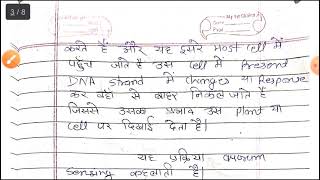 3 / 8
करते हैं और यह दूसरे Most Cell में
पहुंच जाते है उस Cell में Presend
DNA strand में Changes या Response
कर वहां से बाहर निकल जाते है
जिससे उसका प्रभाव उस Plant या
Cell पर दिखाई देता है।
यह प्रक्रिया
Sensing कहलाती है।